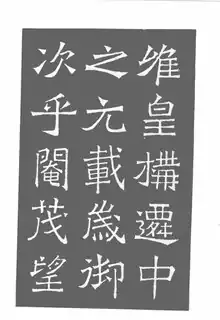 唯皇構遷中
之元載歲御
次乎閹茂望